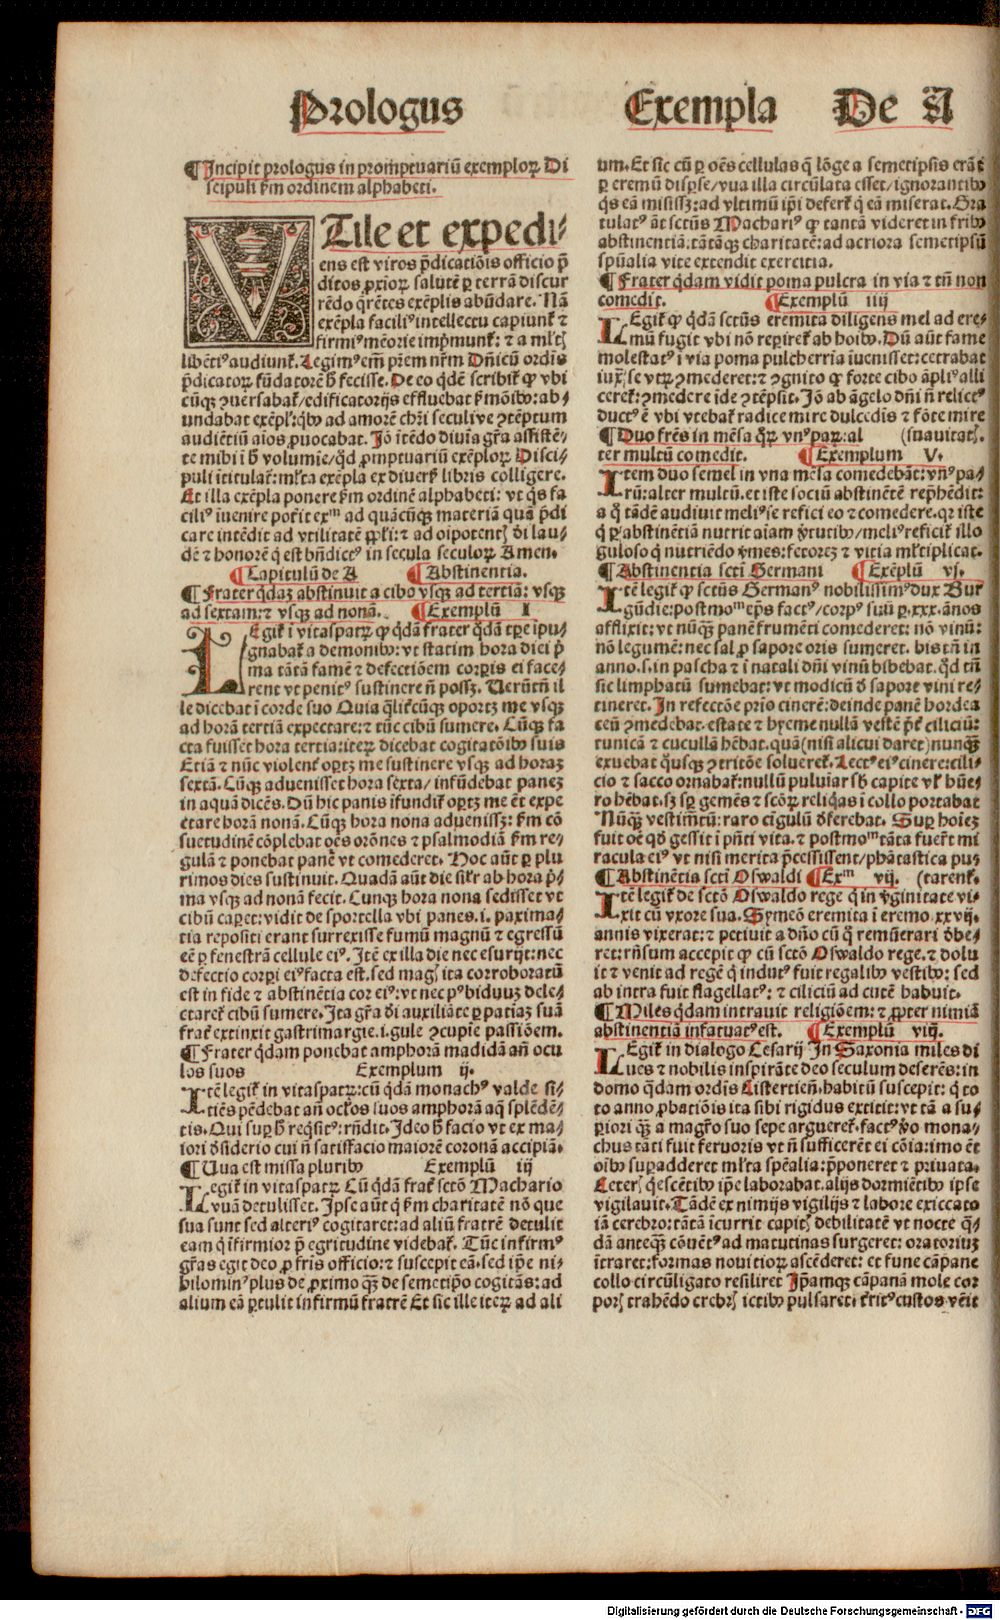 Prologus
Exempla De A
¶ Incipit prologus in promptuariū exemploꝝ Di
scipuli ẜm ordinem alphabeti.
VTile et expedi⸗
ens est viros p̄dicatiōis officio p̄
ditos ꝓxioꝝ salutē ꝑ terrā discur
rēdo q̄rētes exēplis abūdare. Nā
exēpla faciliꝰ intellectu capiunť ⁊
firmiꝰ mēorie imp̄munť: ⁊ a mľtꝭ
libētiꝰ audiunť. Legimꝰ em̄ pr̄em nr̄m Dn̄icū ordīs
p̄dicatoꝝ fūdatorē h̄ fecisse. De eo qdē scribiť ꝙ vbi
cūqꝫ ɔuersabať/ edificatorijs effluebat ẜmōibꝰ: ab⸗
undabat exēplꝭ: qbꝰ ad amorē chri̅ seculi ve ɔtēptum
audiētiū aīos ꝓuocabat. Jō ītēdo diuīa gr̄a assistē⸗
te mihi ī h̄ volumīe/ qd ꝓmptuariū exēploꝝ Disci⸗
puli ītitulať: mľta exēpla ex diuersꝭ libris colligere.
Et illa exēpla ponere ẜm ordinē alphabeti: vt qs fa
ciliꝰ īuenire poťit exᵐ ad quācūqꝫ materiā quā p̄di
care intēdit ad vtilitatē ꝓxi: ⁊ ad oīpotentꝭ dei lau⸗
dē ⁊ honorē q est bn̄dictꝰ in secula seculoꝝ Amen.
¶ Capitulū de A ¶ Abstinentia.
¶ Frater qdaꝫ abstinuit a cibo vsqꝫ ad tertiā: vsqꝫ
ad sextam: ⁊ vsqꝫ ad nonā. ¶ Exemplū I
LEgiť ī vitaspatꝝ ꝙ qdā frater qdā tꝑe īpu⸗
gnabať a demonibꝰ: vt statim hora diei p̄
ma tātā famē ⁊ defectiōem corꝑis ei face⸗
rent vt penitꝰ sustinere n̄ possꝫ. Uerūtn̄ il
le dicebat ī corde suo Quia qľitcūqꝫ oportꝫ me vsqꝫ
ad horā tertiā expectare: ⁊ tūc cibū sumere. Cūqꝫ fa
cta fuisset hora tertia: iteꝝ dicebat cogitatōibꝰ suis
Etiā ⁊ nūc violenť oꝑtꝫ me sustinere vsqꝫ ad horaꝫ
sextā. Cūqꝫ aduenisset hora sexta/ infūdebat paneꝫ
in aquā dicēs. Dū hic panis īfundiť oꝑtꝫ me ēt expe
ctare horā nonā. Cūqꝫ hora nona aduenissꝫ: ẜm cō
suetudinē cōplebat oēs orōnes ⁊ psalmodiā ẜm re⸗
gulā ⁊ ponebat panē vt comederet. Hoc aūt ꝑ plu
rimos dies sustinuit. Quadā aūt die siľr ab hora p̄⸗
ma vsqꝫ ad nonā fecit. Cunqꝫ hora nona sedisset vt
cibū caꝑet: vidit de sportella vbi panes .i. paxima⸗
tia repositi erant surrexisse fumū magnū ⁊ egressū
eē ꝑ fenestrā cellule eiꝰ. Jtē ex illa die nec esurijt: nec
defectio corꝑi eiꝰ facta est. sed magꝭ ita corroboratū
est in fide ⁊ abstinētia cor eiꝰ: vt nec pꝰ biduuꝫ dele⸗
ctareť cibū sumere. Jta gr̄a di auxiliāte ꝑ patiaꝫ suā
frať extinxit gastrimargie .i. gule ɔcupie passiōem.
¶ Frater qdam ponebat amphorā madidā an̄ ocu
los suos Exemplum ij.
ITē legiť in vitaspatꝝ: cū qdā monachꝰ valde si⸗
tiēs pēdebat an̄ ocľos suos amphorā aq̄ splēdē⸗
tis. Qui suꝑ h̄ reqsitꝰ: rn̄dit. Jdeo h̄ facio vt ex ma⸗
iori desiderio cui n̄ satisfacio maiorē coronā accipiā.
¶ Uua est missa pluribꝰ Exemplū iij
LEgiť in vitaspatꝝ Cū qdā frať sctō Machario
vuā detulisset. Jpse aūt q ẜm charitatē nō que
sua sunt sed alteriꝰ cogitaret: ad aliū fratrē detulit
eam q īfirmior p̄ egritudine videbať. Tūc infirmꝰ
gr̄as egit deo ꝓ fr̄is officio: ⁊ suscepit eā. sed ip̄e ni⸗
hilominꝰ plus de ꝓximo qꝫ̄ de semetip̄o cogitās: ad
alium eā ꝑtulit infirmū fratrē Et sic ille iteꝝ ad ali
um. Et sic cū ꝑ oēs cellulas q̄ lōge a semetipsis erāt
ꝑ eremū disꝑse/ vua illa circūlata esset/ ignorantibꝰ
qs eā misissꝫ: ad vltimū ip̄i deferť q eā miserat. Gra
tulatꝰ āt sctūs Machariꝰ ꝙ tantā videret in fribꝰ
abstinentiā: tātāqꝫ charitatē: ad acriora semetipsū
spūalia vite extendit exercitia.
¶ Frater qdam vidit poma pulcra in via ⁊ tn̄ non
comedit. ¶ Exemplū iiij
LEgiť ꝙ qdā sctūs eremita diligens mel ad ere⸗
mū fugit vbi nō reꝑireť ab hoībꝰ. Dū aūt fame
molestatꝰ ī via poma pulcherria īuenisset: certabat
iuxꝭ se vtꝝ ɔmederet: ⁊ ɔgnito ꝙ forte cibo āpliꝰ alli
cereť: ɔmedere īde ɔtēpsit. Jō ab āgelo dn̄i n̄ relictꝰ
ductꝰ ē vbi vtebať radice mire dulcedīs ⁊ fōte mire
¶ Duo frēs in mēsa q̄ꝝ vnꝰ paꝝ: al (suauitatꝭ.
ter multū comedit. ¶ Exemplum V.
ITem duo semel in vna mēsa comedebāt: vnꝰ pa⸗
rū: alter multū. et iste sociū abstinētē rep̄hēdit:
a q tādē audiuit meliꝰ se refici eo ⁊ comedere. qꝛ iste
q ꝑ abstinētiā nutrit aīam v̄tutibꝰ/ meliꝰ reficiť illo
guloso q nutriēdo v̄mes: fetoreꝫ ⁊ vitia mľtiplicat.
¶ Abstinentia sctī Germani ¶ Exēplū vj.
ITē legiť ꝙ sctūs Germanꝰ nobilissimꝰ dux Bur
gūdie: postmoᵐ ep̄s factꝰ/ corpꝰ suū ꝑ .xxx. ānos
afflixit: vt nūqꝫ̄ panē frumēti comederet: nō vinū:
nō legumē: nec sal ꝓ sapore oris sumeret. bis tn̄ in
anno .s. in pascha ⁊ ī natali dn̄i vinū bibebat. qd tn̄
sic limphatū sumebat: vt modicū de sapore vini re⸗
tineret. Jn refectōe prio cinerē: deinde panē hordea
ceū ɔmedebat. estate ⁊ hyeme nullā vestē p̄ť ciliciū:
tunicā ⁊ cucullā hēbat. quā (nisi alicui daret) nunqꝫ̄
exuebat qusqꝫ ɔtritōe soluereť. Lectꝰ eiꝰ cinere: cili⸗
cio ⁊ sacco ornabať: nullū puluīar sb capite vľ hūe⸗
ro hēbat. sꝫ sꝑ gemēs ⁊ scōꝝ reliqas ī collo portabat
Nūqꝫ vestim̄tū: raro cīgulū deferebat. Suꝑ hoīeꝫ
fuit oē qd gessit ī pn̄ti vita. ⁊ postmoᵐ tāta fuerť mi
racula eiꝰ vt nisi merita p̄cessissent/ phātastica pu⸗
¶ Abstinētia sctī Oswaldi ¶ Exᵐ vij. (tarenť.
ITē legiť de sctō Oswaldo rege q in v̄ginitate vi⸗
xit cū vxore sua. Symeō eremita ī eremo .xxvij.
annis vixerat: ⁊ petiuit a dn̄o cū q remūerari debe⸗
ret: rn̄sum accepit ꝙ cū sctō Oswaldo rege. ⁊ dolu
it ⁊ venit ad regē q indutꝰ fuit regalibꝰ vestibꝰ: sed
ab intra fuit flagellatꝰ: ⁊ ciliciū ad cutē habuit.
¶ Miles qdam intrauit religiōem: ⁊ ꝓpter nimiā
abstinentiā infatuatꝰ est. ¶ Exemplū viij.
LEgiť in dialogo Cesarij Jn Saxonia miles di
ues ⁊ nobilis inspirāte deo seculum deserēs: in
domo qdam ordīs Cisterticn̄. habitū suscepit: q to
to anno ꝓbatiōis ita sibi rigidus extitit: vt tā a su⸗
ꝑiori qꝫ̄ a magr̄o suo sepe argueretꝭ. factꝰ vo mona⸗
chus tāti fuit feruoris vt n̄ sufficerēt ei cōia: imo ēt
oībꝰ suꝑadderet mľta spēalia: p̄poneret ⁊ priuata.
Ceterꝭ qescētibꝰ ip̄e laborabat. alijs dormiētibꝰ ipse
vigilauit. Tādē ex nimijs vigilijs ⁊ labore exiccato
iā cerebro: tātā īcurrit capitꝭ debilitatē vt nocte q̄⸗
dā anteqꝫ̄ cōuētꝰ ad matutinas surgeret: oratoriuꝫ
ītraret: formas nouitioꝝ ascēderet: et fune cāpane
collo circūligato resiliret Jp̄amqꝫ cāpanā mole cor
porꝭ trahēdo crebrꝭ ictibꝰ pulsaret. tritꝰ custos vēit
Digitalisierung gefördert durch die Deutsche Forschungsgemeinschaft - DFG